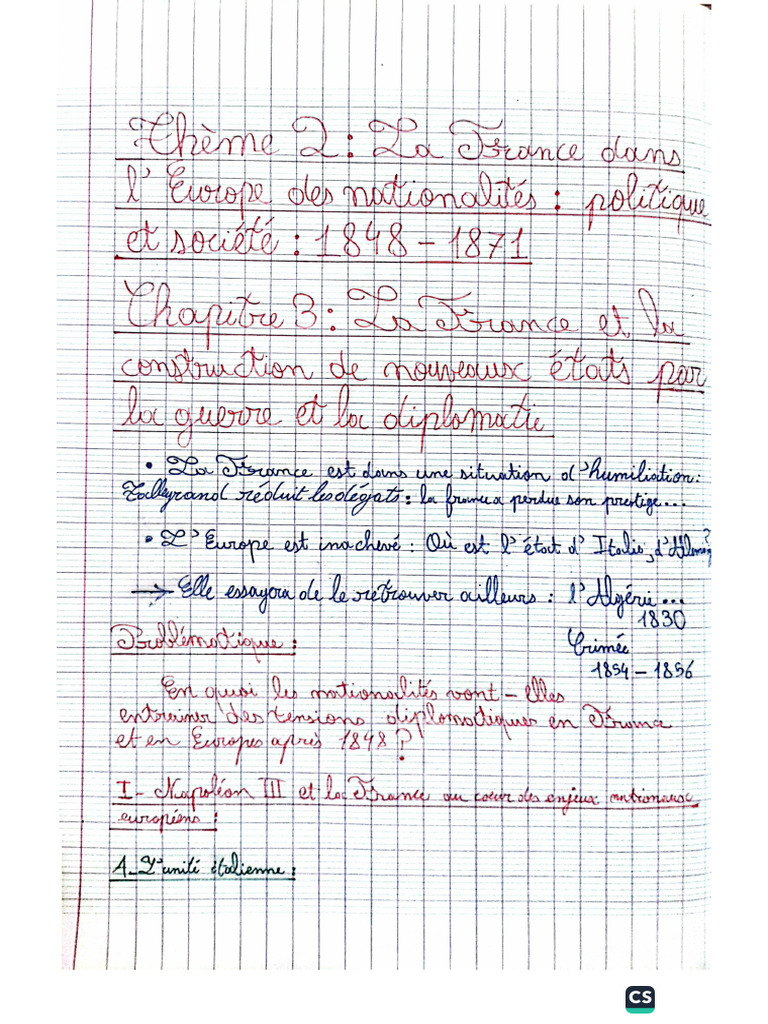 Thème 2 : La France dans
l'Europe des nationalités : politique
et société : 1848 - 1871
Chapitre 3 : La France et la
construction de nouveaux états par
la guerre et la diplomatie
• La France est dans une situation d'humiliation :
Talleyrand réduit les dégats : la france perdue son prestige...
• L'Europe est inachevé : Où est l'état d'Italie, d'Allemag ?
→ Elle essayera de le retrouver ailleurs : l'Algérie...
1830
Crimée
1854 - 1856
Problématique :
En quoi les nationalités vont - elles
entrainer des tensions diplomatiques en France
et en Europes après 1848 ?
I - Napoléon III et la France au coeur des enjeux nationaux
européens :
A - L'unité italienne :
CS